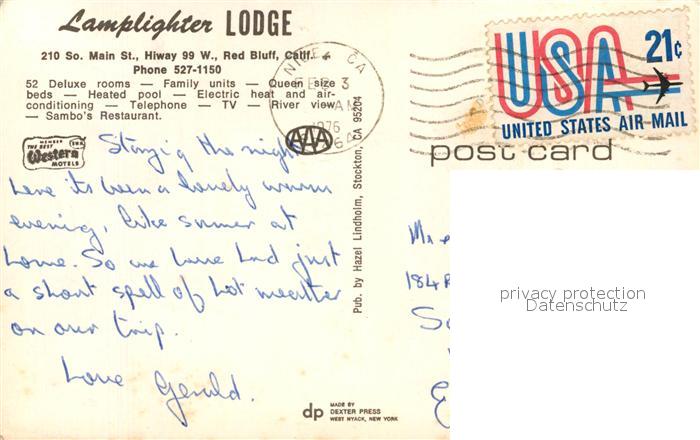 Lamplighter LODGE
210 So. Main St., Hiway 99 W., Red Bluff, Calif.
Phone 527-1150
52 Deluxe rooms — Family units — Queen size
beds — Heated pool — Electric heat and air-
conditioning — Telephone — TV — River view
— Sambo's Restaurant.
MEMBER
THE BEST
Western
MOTELS
AAA
CA
FEB 3
AM
1976
USA 21¢
UNITED STATES AIR MAIL
post card
Staying the night
here its been a lovely warm
evening, like summer at
home. So we have had just
a short spell of hot weather
on our trip.
Love Gerald.
Pub. by Hazel Lindholm, Stockton, CA 95204
dp MADE BY
DEXTER PRESS
WEST NYACK, NEW YORK
184
privacy protection
Datenschutz